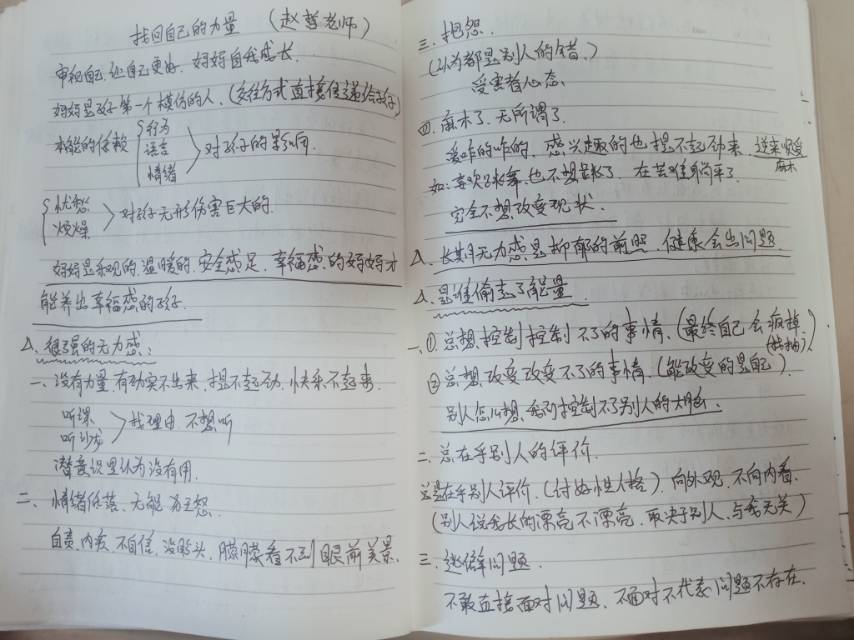 找回自己的力量 (赵哲老师)
审视自己, 让自己更好, 妈妈自我成长.
妈妈是孩子第一个模仿的人. (交往方式直接传递给孩子)
本能的依赖 行为 语言 情绪 对孩子的影响.
忧愁 烦燥 对孩子无形伤害巨大的.
妈妈是乐观的, 温暖的, 安全感足, 幸福感的妈妈才
能养出幸福感的孩子.
△. 很强的无力感:
一、没有力量, 有劲实不出来, 提不起劲, 快乐不起来.
听课 听沙龙 找理由 不想听
潜意识里认为没有用.
二、情绪低落、无能为王怒.
自责, 内疚, 不自信, 没盼头, 朦朦看不到眼前美景.
三. 抱怨.
(认为都是别人的错.)
受害者心态.
四. 麻木了. 无所谓了.
爱咋的咋的, 感兴趣的也提不起劲来, 逆来顺受 麻木
如: 喜欢跳舞, 也不想跳了. 在苦难躺平了.
完全不想改变现状.
△. 长期无力感是抑郁的前照, 健康会出问题
△. 是谁偷走了能量
一、① 总想控制控制不了的事情, (最终自己会疯掉.)
② 总想改变改变不了的事情. (能改变的是自己).
别人怎么想, 我们控制不了别人的大脑.
二. 总在乎别人的评价.
总是在乎别人评价. (讨好性人格), 向外观, 不向内看.
(别人说我长的漂亮不漂亮, 取决于别人, 与我无关)
三. 逃僻问题.
不敢直接面对问题. 不面对不代表问题不存在.